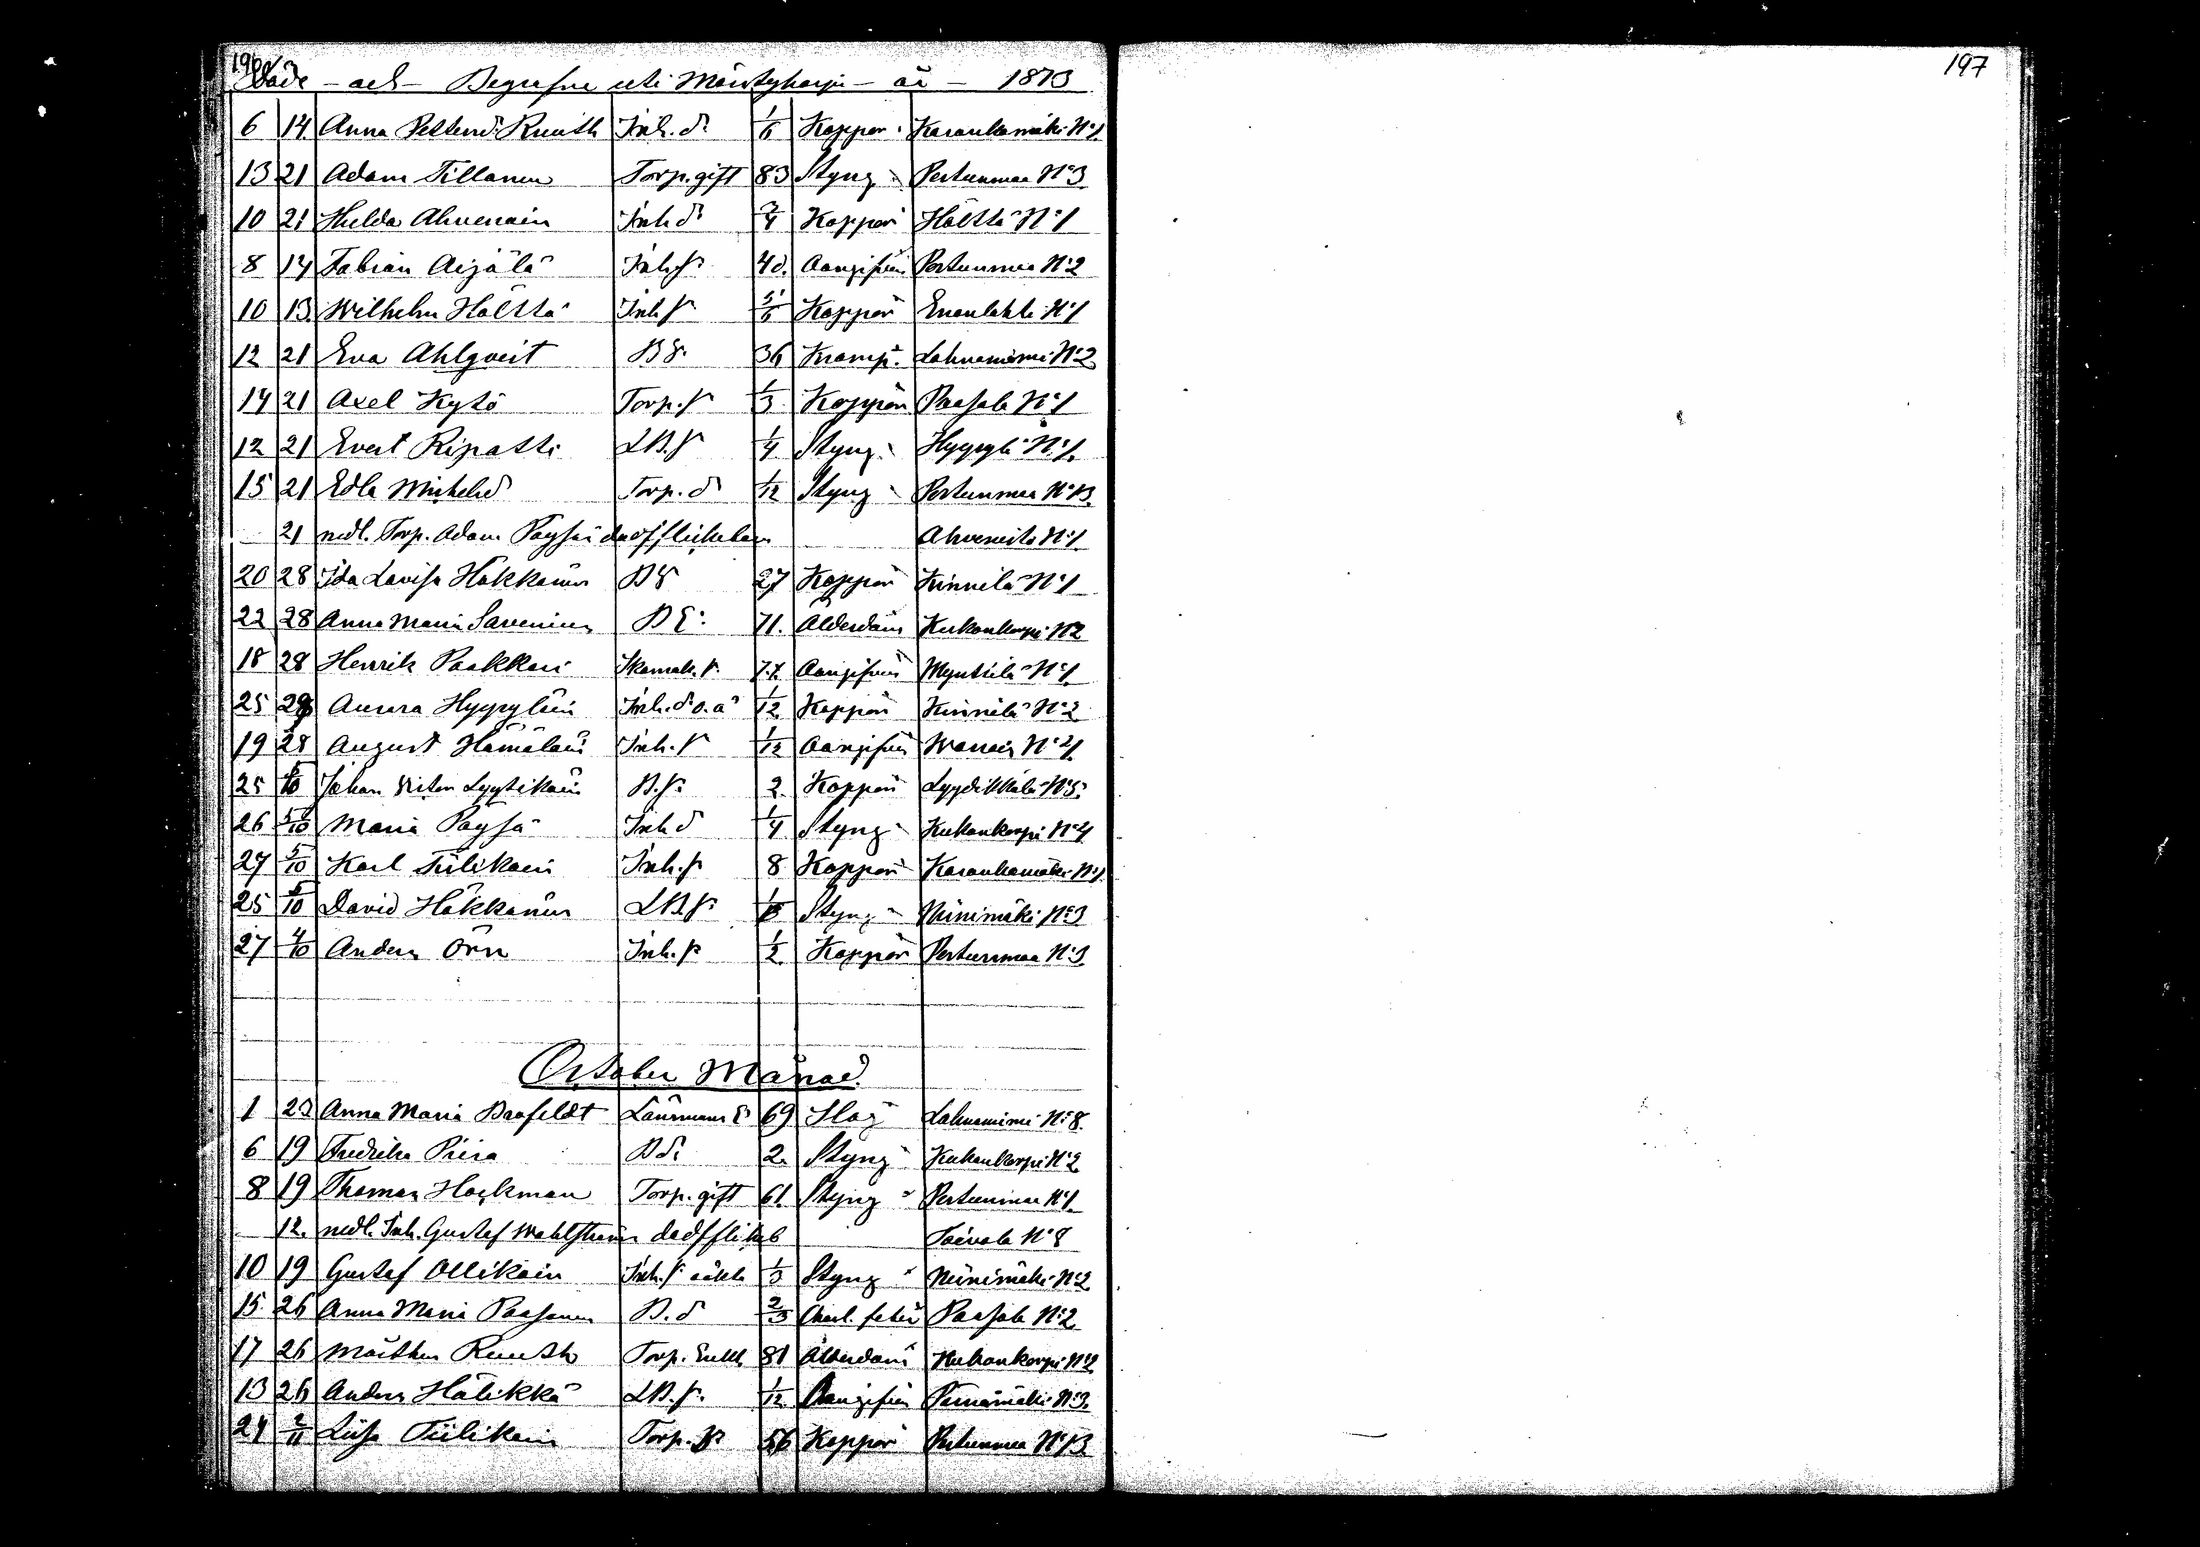 196
197
Döde - och - Begrafne uti Mäntyharju - år - 1873
6 14 Anna Pettersd. Ruuth Inh. d. 1/6 Koppor Karankamäki N:1
13 21 Adam Tillanen Torp. gift 83 Styng Pertunmaa N:3
10 21 Hulda Ahvenain Inh d. 3/4 Koppor Hölttä N:1
8 14 Fabian Aijälä Inh. s. 4 d. Oangifven Pertunmaa N:2
10 13 Wilhelm Hölttä Inh s. 5/6 Koppor Enonlahti N:1
12 21 Eva Ahlqvist B E. 36 Kramp. Lahnaniemi N:2
14 21 Axel Kytö Torp. s. 1/3 Koppor Paasola N:1
12 21 Evert Ripatti LB. s. 1/4 Styng Hyyrylä N:1
15 21 Edla Michelsd Torp. d. 1/12 Styng Pertunmaa N:13
21 nedl. Torp. Adam Pöysä dödf flickebarn Ahvenisto N:1
20 28 Ida Lovisa Häkkänen B E 27 Koppor Kinnilä N:1
22 28 Anna Maria Savenius B E: 71. Ålderdom Kuhankorpi N:2
18 28 Henrik Paakkari Skomak. s. Oangifven Mynttilä N:1
25 28 Aurora Hyyryläin Inh. d. o. ä 1/12 Koppor Kinnilä N:2
19 28 August Hämäläin Inh. s. 1/12 Oangifven N:4
25 5/10 Johan Lyytikäin B. s. 2. Koppor Lyydikkälä N:5
26 5/10 Maria Pöysä Inh d 1/4 Styng Kuhankorpi N:4
27 5/10 Karl Tiilikain Inh. s. 8 Koppor Karankamäki N:1
25 5/10 David Häkkänen LB. s. Styng Niinimäki N:3
27 4/10 Anders Örn Inh. s. 1/2 Koppor Pertunmaa N:3
October Månad.
1 23 Anna Maria Länsmans E: 69 Slag Lahnaniemi N:8
6 19 Fredrika Piira B d: 2. Styng Kuhankorpi N:2
8 19 Thomas Hockman Torp. gift 61. Styng Pertunmaa N:1
12. nedl. Inh. Gustaf Wahlström dödf flickeb Toivola N:8
10 19 Gustaf Ollikain Inh. s. oäkta 1/3 Styng Niinimäki N:2
15 26 Anna Maria Paasonen B. d 2/3 Charl. feber Paasola N:2
17 26 Matthis Ruuth Torp. Enkl. 81 Ålderdom Kuhankorpi N:2
13 26 Anders Hälikkä LB. s. 1/12 Oangifven N:3
24 2/11 Liisa Tiilikain Torp. 56 Koppor Pertunmaa N:13